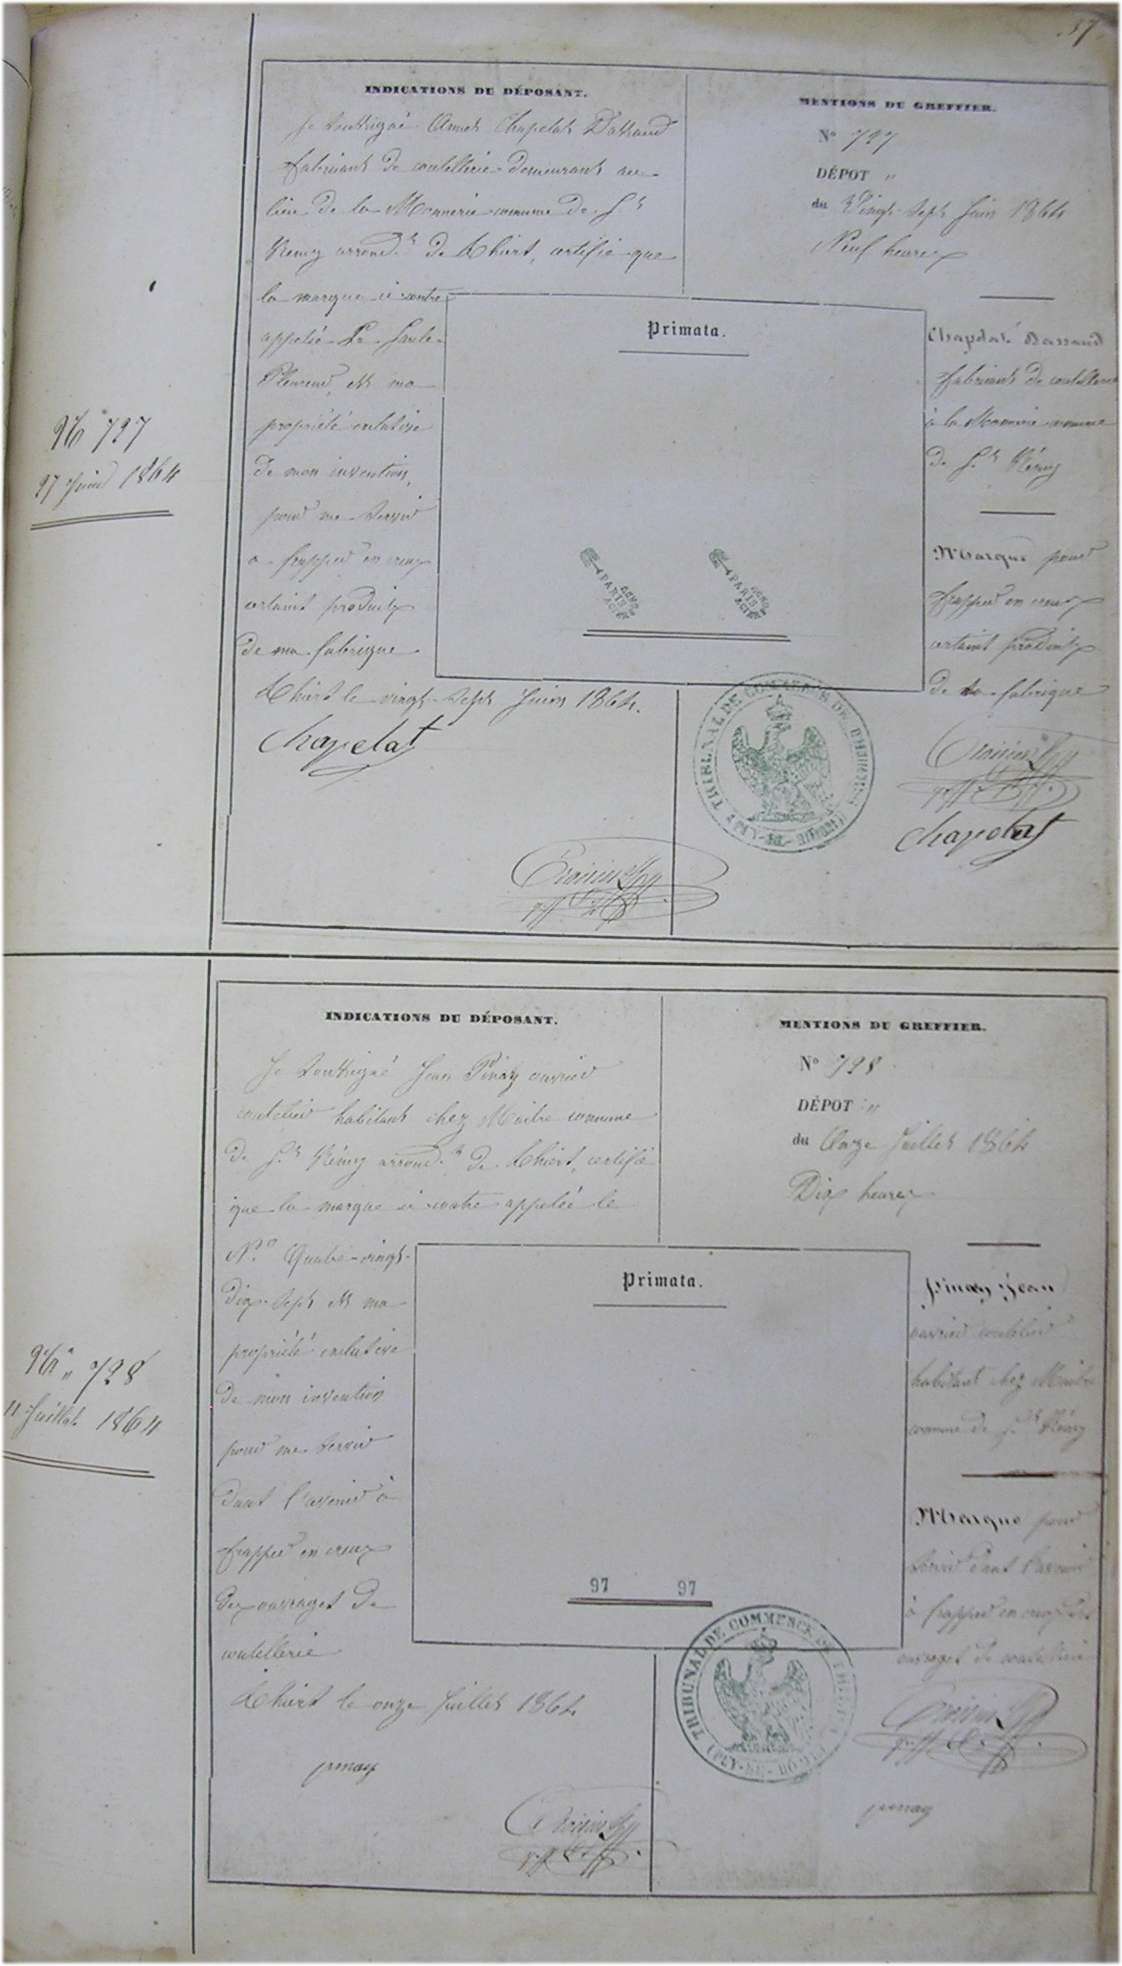 37
INDICATIONS DU DÉPOSANT.
Je soussigné Annet Chapelat Dassaud
fabricant de coutellerie demeurant au
lieu de la Monnerie commune de St
Remy arrondt de Thiert, certifie que
la marque ci contre
appelée Le Saule
Pleureur est ma
propriété exclusive
de mon invention,
pour me servir
a frapper en creux
certains produits
de ma fabrique
Thiert le vingt-sept Juin 1864.
Chapelat
MENTIONS DU GREFFIER.
No 797
DÉPOT "
du Vingt-Sept Juin 1864
Neuf heures
Primata.
PARIS
PARIS
Chapelat Dassaud
fabricant de coutellerie
à la Monnerie commune
de St Rémy
Marque pour
frapper en creux
certains produits
de sa fabrique
Chapelat
TRIBUNAL DE COMMERCE DE THIERS
(PUY-DE-DOME)
No 797
27 Juin 1864
INDICATIONS DU DÉPOSANT.
Je soussigné Jean Pinay ouvrier
coutelier habitant chez Maitre commune
de St Rémy arrondt de Thiert, certifie
que la marque ci contre appelée le
No Quatre-vingt-
dix-sept est ma
propriété exclusive
de mon invention
pour me servir
dans l'avenir à
frapper en creux
des ouvrages de
coutellerie
Thiert le onze Juillet 1864
pinay
MENTIONS DU GREFFIER.
No 798
DÉPOT "
du Onze Juillet 1864
Dix heures
Primata.
97 97
Pinay Jean
ouvrier coutelier
habitant chez Maitre
commune de St Rémy
Marque pour
servir dans l'avenir
à frapper en creux des
ouvrages de coutellerie
pinay
TRIBUNAL DE COMMERCE DE THIERS
(PUY-DE-DOME)
No " 798
11 Juillet 1864